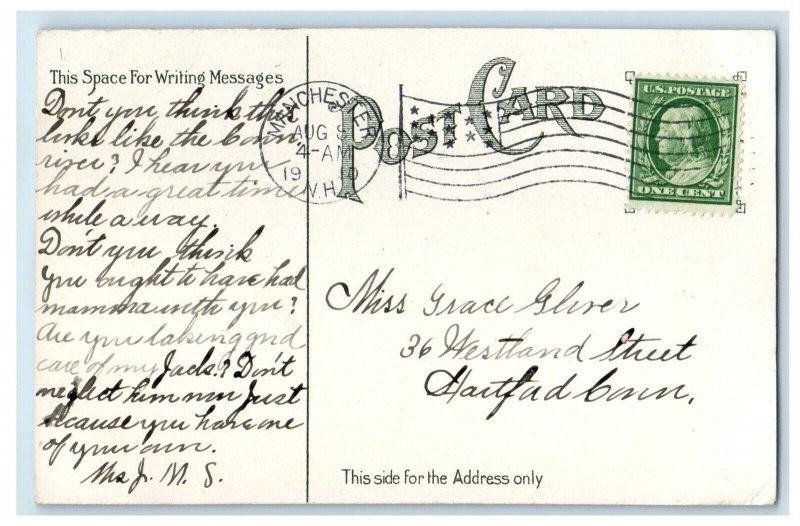 This Space For Writing Messages
Don't you think this
looks like the Conn
river? I hear you
had a great time
while away.
Don't you think
you ought to have had
mamma with you?
Are you taking good
care of my Jack? Don't
neglect him now just
because you have one
of your own.
Mrs J. M. S.
POST CARD
MANCHESTER
AUG 8
4-AM
19 0
N.H.
U.S. POSTAGE
ONE CENT
Miss Grace Glover
36 Westland Street
Hartford Conn.
This side for the Address only